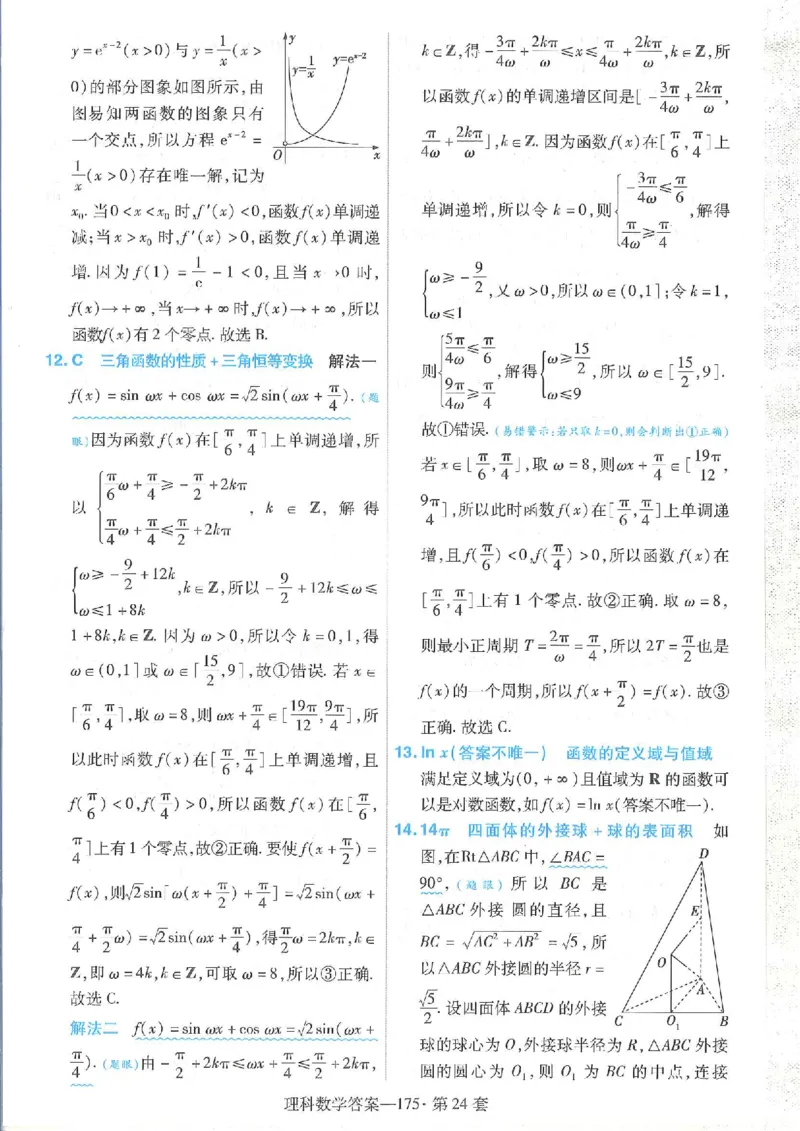 y=e^{x-2}(x>0)与y=\frac{1}{x}(x>
0)的部分图象如图所示,由
图易知两函数的图象只有
一个交点,所以方程 e^{x-2} =
\frac{1}{x}(x>0)存在唯一解,记为
y
y=\frac{1}{x}
y=e^{x-2}
O
x
x_0. 当0<x<x_0 时,f'(x)<0,函数f(x)单调递
减;当 x>x_0 时,f'(x)>0,函数f(x)单调递
增. 因为 f(1) = \frac{1}{e} - 1 < 0, 且当 x→0 时,
f(x)→+∞,当x→+∞时,f(x)→+∞,所以
函数f(x)有2个零点. 故选 B.
12. C 三角函数的性质+三角恒等变换 解法一
f(x) = sin ωx + cos ωx = \sqrt{2}sin(ωx + \frac{π}{4}). (题
眼)因为函数f(x)在[\frac{π}{6},\frac{π}{4}]上单调递增,所
以 {\frac{π}{6}ω+\frac{π}{4}≥-\frac{π}{2}+2kπ
\frac{π}{4}ω+\frac{π}{4}≤\frac{π}{2}+2kπ , k ∈ Z, 解得
{ω≥-\frac{9}{2}+12k
ω≤1+8k ,k∈Z,所以-\frac{9}{2}+12k≤ω≤
1+8k,k∈Z. 因为 ω>0,所以令 k=0,1,得
ω∈(0,1]或 ω∈[\frac{15}{2},9],故①错误. 若 x∈
[\frac{π}{6},\frac{π}{4}],取ω=8,则ωx+\frac{π}{4}∈[\frac{19π}{12},\frac{9π}{4}],所
以此时函数f(x)在[\frac{π}{6},\frac{π}{4}]上单调递增,且
f(\frac{π}{6})<0,f(\frac{π}{4})>0,所以函数f(x)在[\frac{π}{6},
\frac{π}{4}]上有1个零点,故②正确. 要使f(x+\frac{π}{2})=
f(x),则\sqrt{2}sin[ω(x+\frac{π}{2})+\frac{π}{4}]=\sqrt{2}sin(ωx+
\frac{π}{4}+\frac{π}{2}ω)=\sqrt{2}sin(ωx+\frac{π}{4}),得\frac{π}{2}ω=2kπ,k∈
Z,即ω=4k,k∈Z,可取ω=8,所以③正确.
故选 C.
解法二 f(x)=sin ωx+cos ωx=\sqrt{2}sin(ωx+
\frac{π}{4}). (题眼)由-\frac{π}{2}+2kπ≤ωx+\frac{π}{4}≤\frac{π}{2}+2kπ,
k∈Z,得-\frac{3π}{4ω}+\frac{2kπ}{ω}≤x≤\frac{π}{4ω}+\frac{2kπ}{ω},k∈Z,所
以函数f(x)的单调递增区间是[-\frac{3π}{4ω}+\frac{2kπ}{ω},
\frac{π}{4ω}+\frac{2kπ}{ω}],k∈Z. 因为函数f(x)在[\frac{π}{6},\frac{π}{4}]上
单调递增,所以令 k=0,则{-\frac{3π}{4ω}≤\frac{π}{6}
\frac{π}{4ω}≥\frac{π}{4} ,解得
{ω≥-\frac{9}{2}
ω≤1 ,又ω>0,所以ω∈(0,1];令k=1,
则{\frac{5π}{4ω}≤\frac{π}{6}
\frac{9π}{4ω}≥\frac{π}{4} ,解得{ω≥\frac{15}{2}
ω≤9 ,所以 ω∈[\frac{15}{2},9].
故①错误. (易错警示:若只取k=0,则会判断出①正确)
若x∈[\frac{π}{6},\frac{π}{4}],取ω=8,则ωx+\frac{π}{4}∈[\frac{19π}{12},
\frac{9π}{4}],所以此时函数f(x)在[\frac{π}{6},\frac{π}{4}]上单调递
增,且f(\frac{π}{6})<0,f(\frac{π}{4})>0,所以函数f(x)在
[\frac{π}{6},\frac{π}{4}]上有1个零点. 故②正确. 取ω=8,
则最小正周期 T=\frac{2π}{ω}=\frac{π}{4},所以2T=\frac{π}{2}也是
f(x)的一个周期,所以f(x+\frac{π}{2})=f(x). 故③
正确. 故选 C.
13. ln x(答案不唯一) 函数的定义域与值域
满足定义域为(0,+∞)且值域为 R 的函数可
以是对数函数,如f(x)=ln x(答案不唯一).
14. 14π 四面体的外接球+球的表面积 如
图,在Rt△ABC中,∠BAC=
90°, (题眼) 所以 BC 是
△ABC 外接圆的直径,且
BC = \sqrt{AC^2+AB^2} = \sqrt{5},所
以△ABC外接圆的半径r=
\frac{\sqrt{5}}{2}. 设四面体 ABCD 的外接
D
E
O
A
C
O_1
B
球的球心为O,外接球半径为R,△ABC外接
圆的圆心为 O_1,则 O_1 为 BC 的中点,连接
理科数学答案—175·第24套